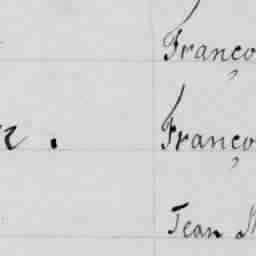 Franço
Franço
Jean